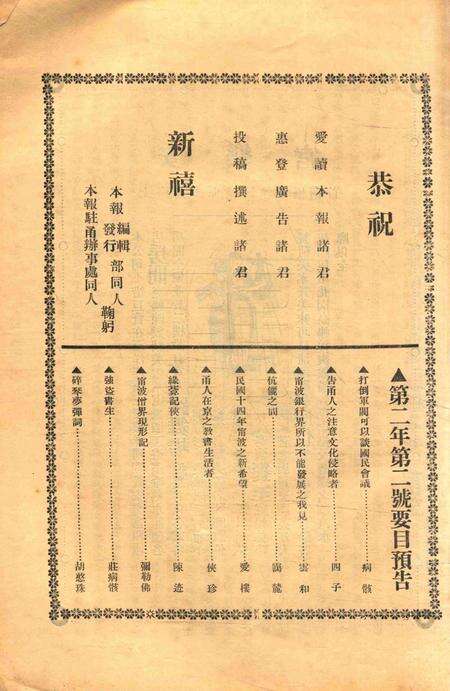 恭祝
愛讀本報諸君
惠登廣告諸君
投稿撰述諸君
新禧
本報編輯發行部同人
本報駐甬辦事處同人
鞠躬
▲第二年第二號要目預告
▲打倒軍閥可以談國民會議……病骸
▲告甬人之注意文化侵略者……四子
▲甯波銀行界所以不能發展之我見……雲和
▲伉儷之間……
▲民國十四年甯波之新希望……愛樸
▲甬人在京之教書生活者……俠珍
▲綠蕓記俠……陳迹
▲甯波僧界現形記……彌勒佛
▲強盜書生……莊病骸
▲碎琴夢彈詞……胡憨珠